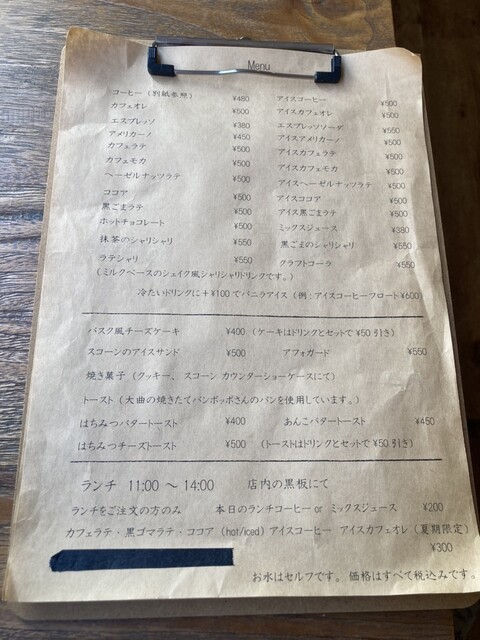 Menu
コーヒー (別紙参照) ¥480 アイスコーヒー ¥500
カフェオレ ¥500 アイスカフェオレ ¥500
エスプレッソ ¥380 エスプレッソソーダ ¥550
アメリカーノ ¥450 アイスアメリカーノ ¥500
カフェラテ ¥500 アイスカフェラテ ¥500
カフェモカ ¥500 アイスカフェモカ ¥500
ヘーゼルナッツラテ ¥500 アイスヘーゼルナッツラテ ¥500
ココア ¥500 アイスココア ¥500
黒ごまラテ ¥500 アイス黒ごまラテ ¥500
ホットチョコレート ¥500 ミックスジュース ¥380
抹茶のシャリシャリ ¥550 黒ごまのシャリシャリ ¥550
ラテシャリ ¥550 クラフトコーラ ¥550
(ミルクベースのシェイク風シャリシャリドリンクです。)
冷たいドリンクに+¥100でバニラアイス (例:アイスコーヒーフロート¥600
バスク風チーズケーキ ¥400 (ケーキはドリンクとセットで¥50引き)
スコーンのアイスサンド ¥500 アフォガード ¥550
焼き菓子 (クッキー、スコーン カウンターショーケースにて)
トースト (大曲の焼きたてパンポッポさんのパンを使用しています。)
はちみつバタートースト ¥400 あんこバタートースト ¥450
はちみつチーズトースト ¥500 (トーストはドリンクとセットで¥50引き)
ランチ 11:00 ~ 14:00 店内の黒板にて
ランチをご注文の方のみ 本日のランチコーヒー or ミックスジュース ¥200
カフェラテ・黒ゴマラテ・ココア (hot/iced) アイスコーヒー アイスカフェオレ (夏期限定)
¥300
お水はセルフです。価格はすべて税込みです。